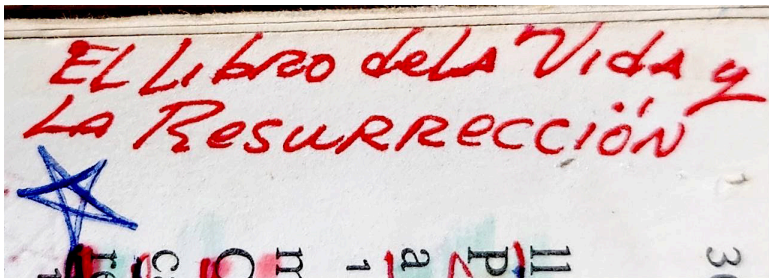 El Libro de la Vida y
La Resurrección